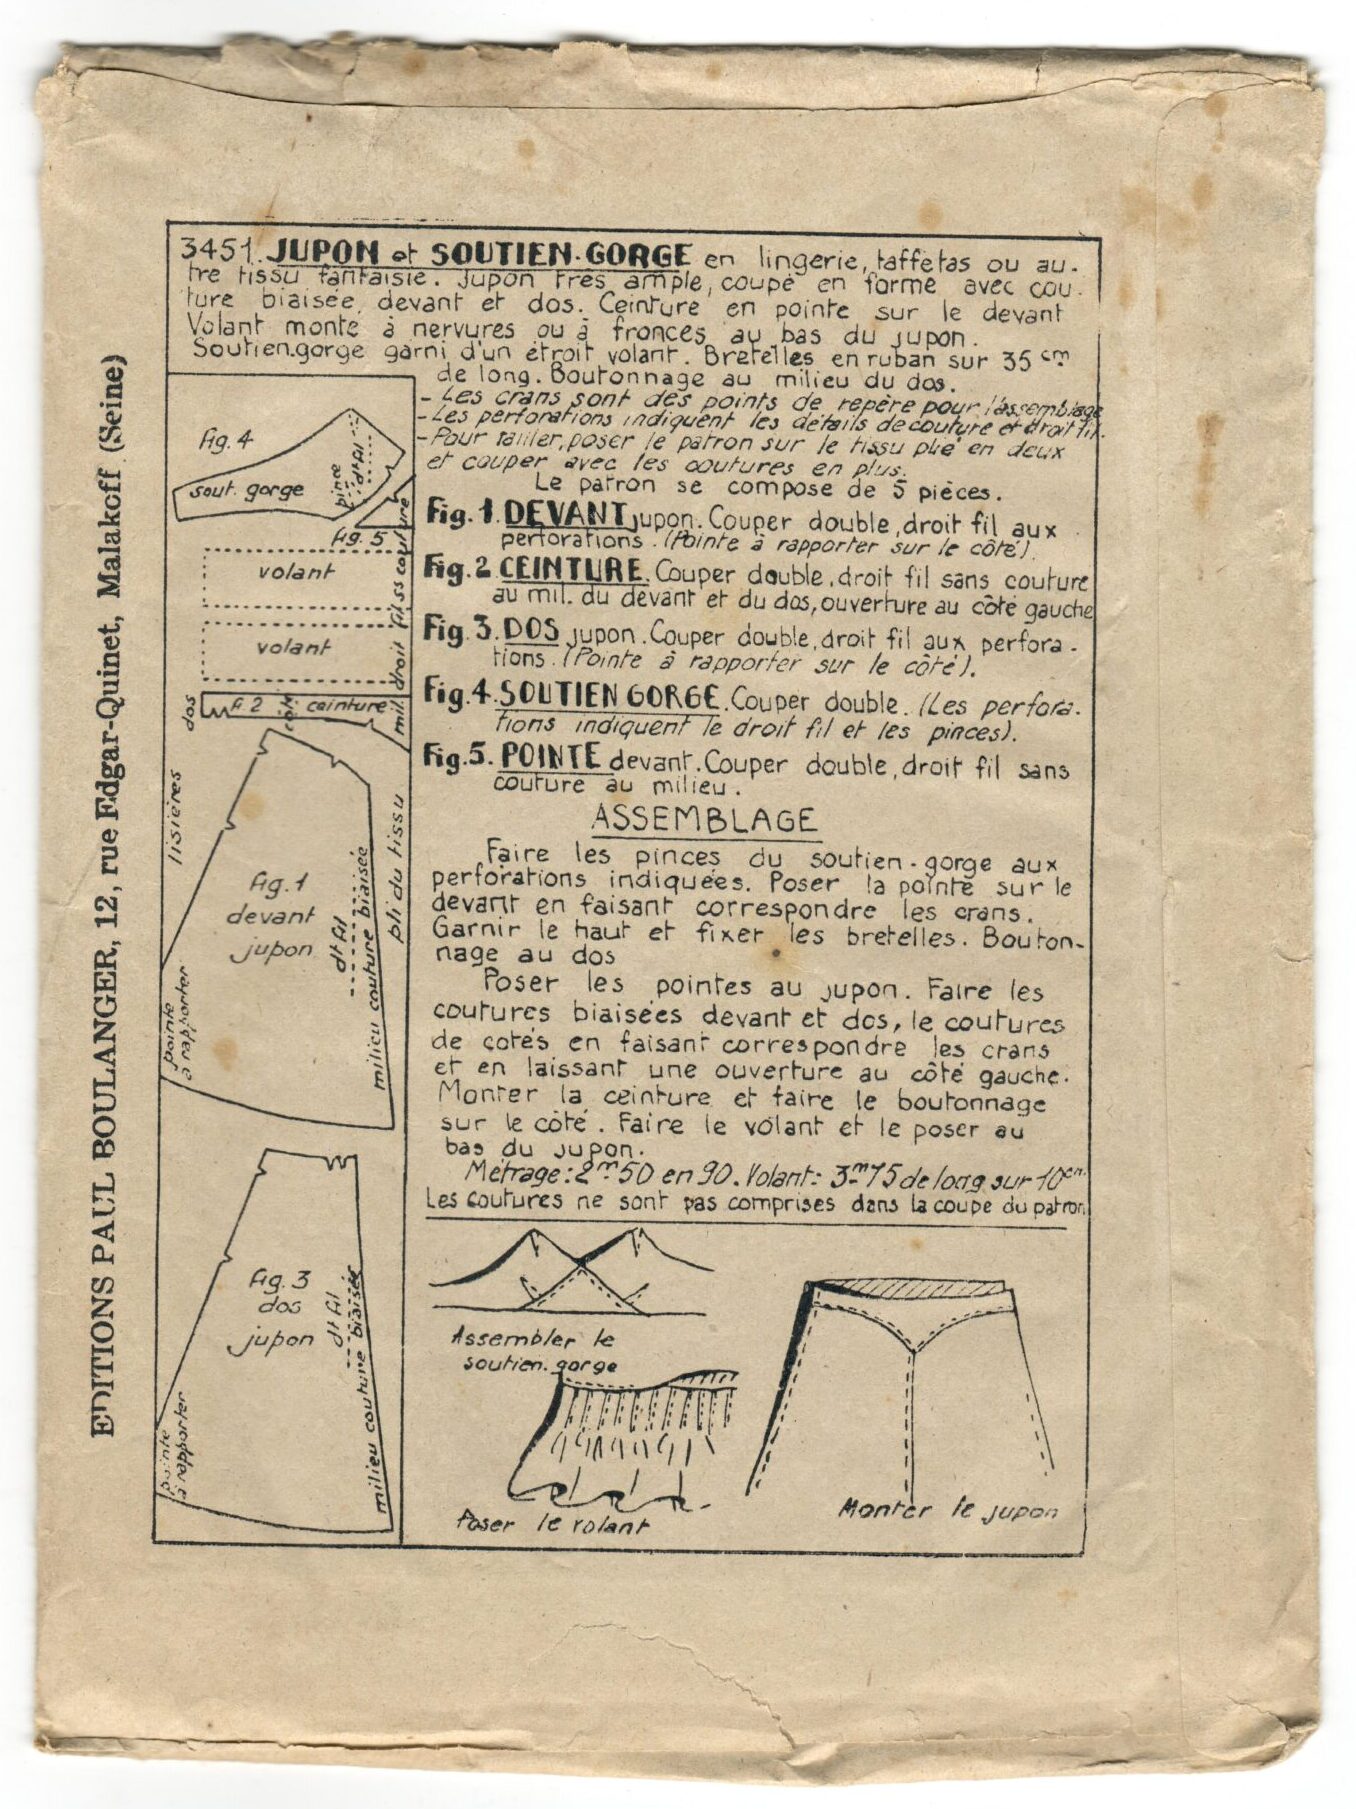 EDITIONS PAUL BOULANGER, 12, rue Edgar-Quinet, Malakoff (Seine)
3451. JUPON et SOUTIEN-GORGE en lingerie, taffetas ou au-
tre tissu fantaisie. Jupon très ample, coupé en forme avec cou-
ture biaisée, devant et dos. Ceinture en pointe sur le devant
Volant monté à nervures ou à fronces au bas du jupon.
Soutien.gorge garni d'un étroit volant. Bretelles en ruban sur 35 cm
de long. Boutonnage au milieu du dos.
- Les crans sont des points de repère pour l'assemblage
- Les perforations indiquent les détails de couture et droit fil.
- Pour tailler, poser le patron sur le tissu plié en deux
et couper avec les coutures en plus.
Le patron se compose de 5 pièces.
Fig. 1. DEVANT jupon. Couper double, droit fil aux
perforations. (Pointe à rapporter sur le côté).
Fig. 2 CEINTURE. Couper double, droit fil sans couture
au mil. du devant et du dos, ouverture au côté gauche
Fig. 3. DOS jupon. Couper double, droit fil aux perfora-
tions. (Pointe à rapporter sur le côté).
Fig. 4. SOUTIEN GORGE. Couper double. (Les perfora-
tions indiquent le droit fil et les pinces).
Fig. 5. POINTE devant. Couper double, droit fil sans
couture au milieu.
ASSEMBLAGE
Faire les pinces du soutien-gorge aux
perforations indiquées. Poser la pointe sur le
devant en faisant correspondre les crans.
Garnir le haut et fixer les bretelles. Bouton-
nage au dos
Poser les pointes au jupon. Faire les
coutures biaisées devant et dos, le coutures
de cotés en faisant correspondre les crans
et en laissant une ouverture au côté gauche.
Monter la ceinture et faire le boutonnage
sur le côté. Faire le volant et le poser au
bas du jupon.
Métrage: 2m50 en 90. Volant: 3m75 de long sur 10cm.
Les coutures ne sont pas comprises dans la coupe du patron
fig. 4
sout. gorge
pince
dt fil
fig. 5
volant
volant
mil. droit fil ss couture
dos
f. 2
coté
ceinture
lisières
pli du tissu
fig. 1
devant
jupon
dt fil
milieu couture biaisée
pointe
à rapporter
fig. 3
dos
jupon
dt fil
milieu couture biaisée
pointe
à rapporter
Assembler le
soutien.gorge
Poser le volant
Monter le jupon